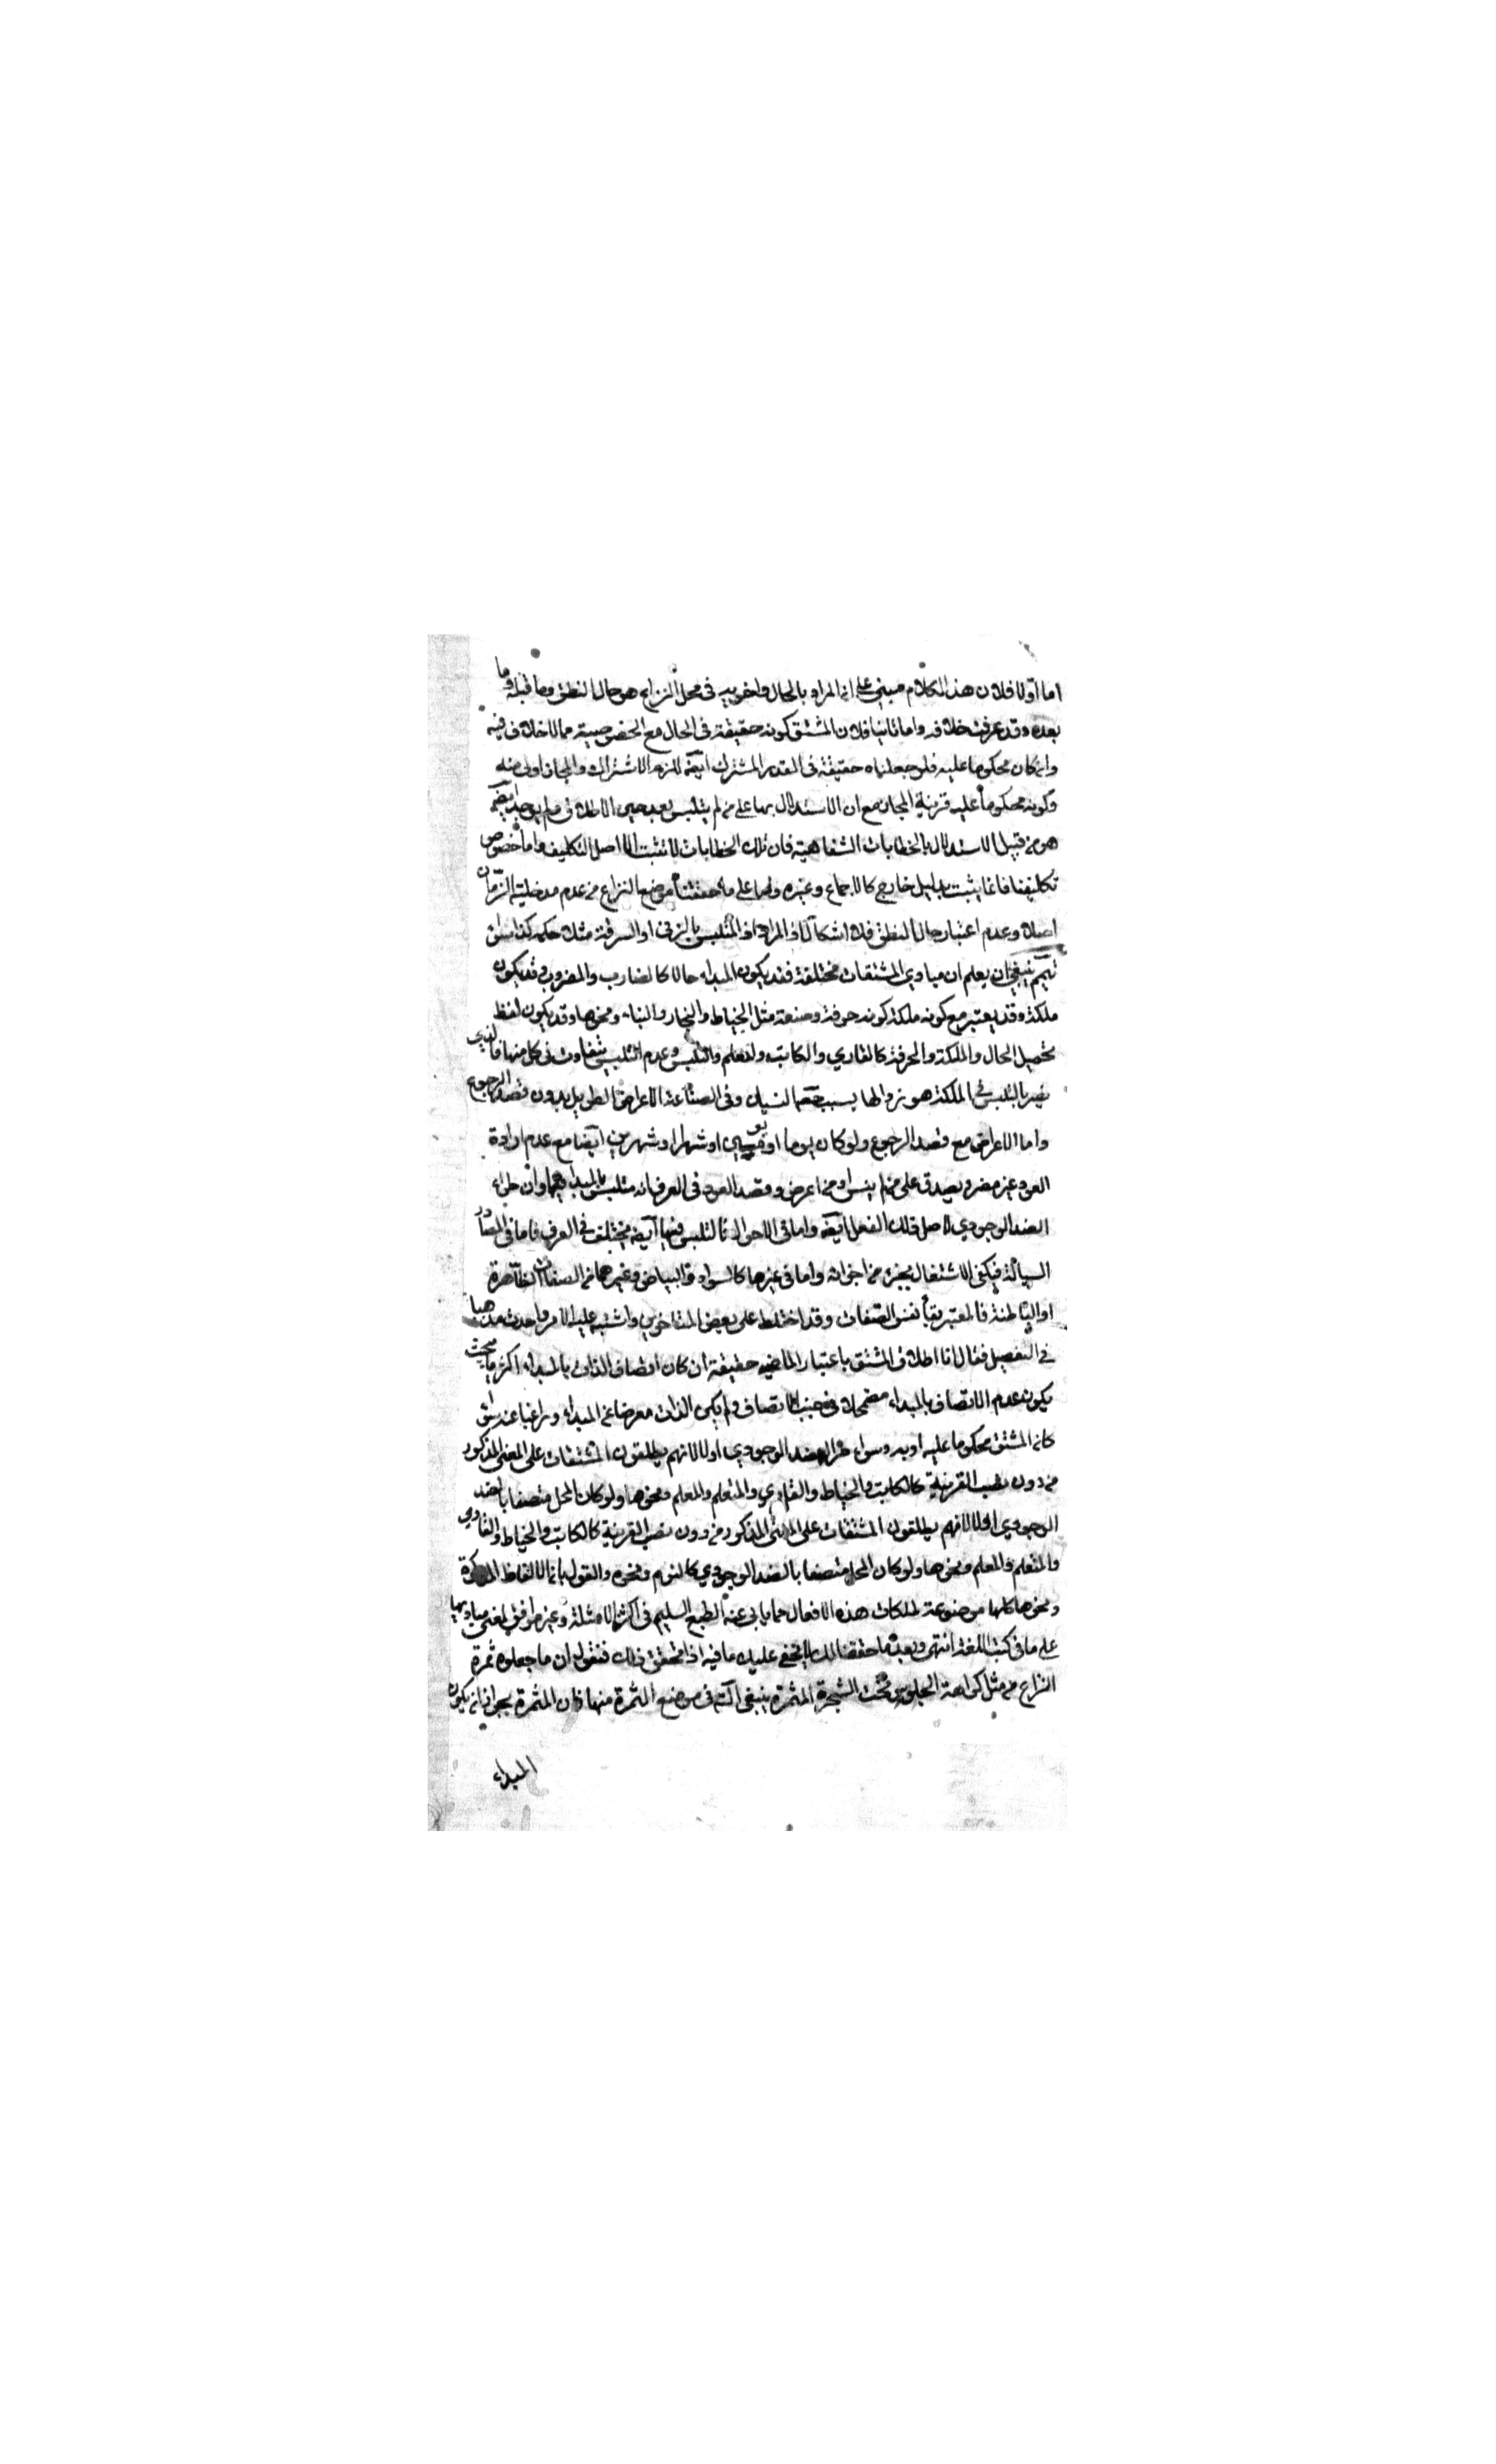 اما اولا فلان هذا الكلام مبني على ان المراد بالحال واخويه في محل النزاع هو حال النطق وما قبله وما
بعده وقد عرفت خلافه واما ثانيا فلان المشتق كونه حقيقة في الحال مع الخصوصية مما لا خلاف فيه
وان كان محكوما عليه فلو جعلناه حقيقة في القدر المشترك ايضه للزم الاشتراك والمجاز اولى منه
وكونه محكوما عليه قرينة المجاز مع ان الاستدلال بها على من لم يتلبس بعد حين الاطلاق ولم يوجد ايضه
هو من قبيل الاستدلال بالخطابات الشفاهية فان تلك الخطابات لا تثبت الا اصل التكليف واما خصوص
تكليفنا فانما يثبت بدليل خارج كالاجماع وغيره واما على ما حققنا موضع النزاع من عدم مدخلية الزمان
اصلا وعدم اعتبار حال النطق فلا اشكال اذ المراد ان المتلبس بالزنى او السرقة مثلا حكمه كذا
ثم ينبغي ان يعلم ان مبادي المشتقات مختلفة فقد يكون المبداء حالا كالضارب والمضروب وقد يكون
ملكة وقد يعتبر مع كونه ملكة كونه حرفة وصنعة مثل الخياط والنجار والبناء ونحوها وقد يكون لفظ
يحتمل الحال والملكة والحرفة كالقاري والكاتب والمعلم والتلبس وعدم التلبس يتفاوت في كل منها فالذي
يضر بالتلبس في الملكة هو زوالها بسبب النسيان وفي الصناعة الاعراض الطويل بدون قصد الرجوع
واما الاعراض مع قصد الرجوع ولو كان يوما او يومين او شهرا او شهرين ايضا مع عدم ارادة
العود غير مضر ويصدق على من لم ينس او من اعرض وقصد العود في العرف انه متلبس بالمبداء وان طراء
الضد الوجودي لاصل ذلك الفعل ايضه واما في الاحوال فالتلبس فيها ايضه يختلف في العرف فاما في المصادر
السيالة فيكفي الاشتغال بجزء من اجزائه واما في غيرها كالسواد والبياض وغيرهما من الصفات الظاهرة
او الباطنة فالمعتبر بقاء نفس الصفات وقد اختلط على بعض المتاخرين واشتبه عليه الامر واحدث مذهبا
في التفصيل فقال ان اطلاق المشتق باعتبار الماضي حقيقة ان كان اتصاف الذات بالمبداء اكثريا بحيث
يكون عدم الاتصاف بالمبداء مضمحلا في جنب الاتصاف ولم يكن الذات معرضا عن المبداء وراغبا عنه سواء
كان المشتق محكوما عليه او به وسواء طرء الضد الوجودي اولا لانهم يطلقون المشتقات على المعنى المذكور
من دون نصب القرينة كالكاتب والخياط والقاري والمتعلم والمعلم ونحوها ولو كان المحل متصفا بالضد
الوجودي اولا لانهم يطلقون المشتقات على المعنى المذكور من دون نصب القرينة كالكاتب والخياط والقاري
والمتعلم والمعلم ونحوها ولو كان المحل متصفا بالضد الوجودي كالنوم ونحوه والقول بان الالفاظ المذكورة
ونحوها كلها موضوعة لملكات هذه الافعال مما يابى عنه الطبع السليم في اكثر الامثلة وغير موافق لمعنى مباديها
على ما في كتب اللغة انتهى وبعد ما حققنا لك لا يخفى عليك ما فيه اذا تحقق ذلك فنقول ان ما جعلوه ثمرة
النزاع من مثل كراهة الجلوس تحت الشجرة المثمرة ينبغي في موضع الثمرة منها فان المثمرة يجوز ان يكون
المبداء